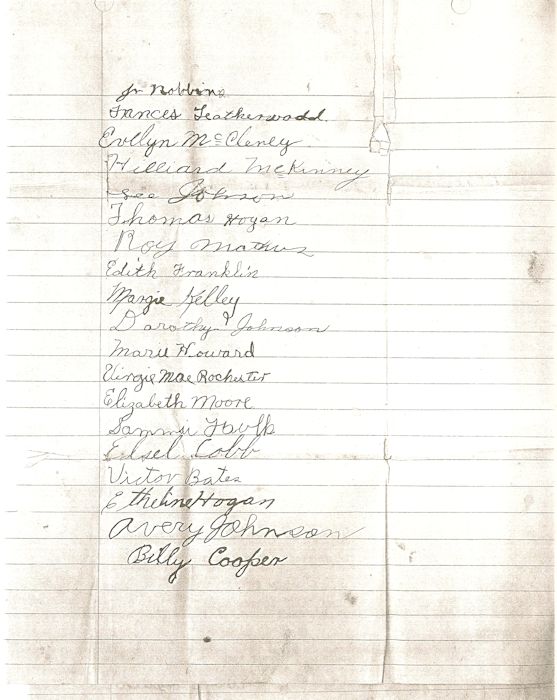 Jr Robbins
Frances Leatherwood
Evelyn McCleney
Hilliard McKinney
Lee Johnson
Thomas Hogan
Roy Mathus
Edith Franklin
Margie Kelley
Dorothy Johnson
Marie Howard
Virgie Mae Rochester
Elizabeth Moore
Sammie
Edsel Cobb
Victor Bates
Etheline Hogan
Avery Johnson
Billy Cooper